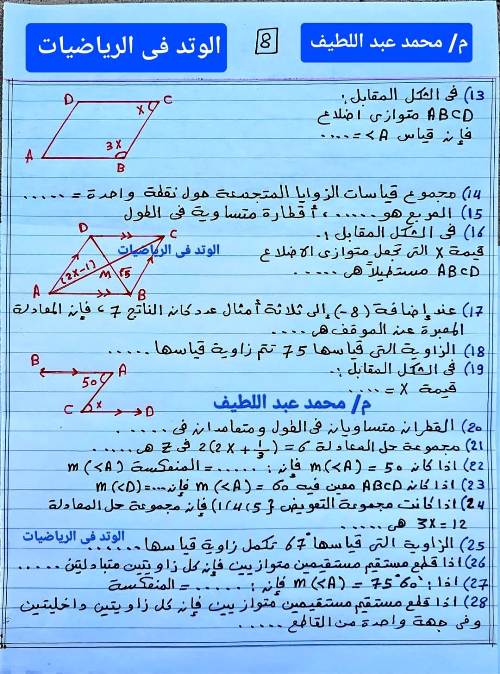 م/ محمد عبد اللطيف
8
الوتد فى الرياضيات
13) فى الشكل المقابل:
ABCD متوازى اضلاع
فإن قياس A> = ....
D C X 3X A B
14) مجموع قياسات الزوايا المتجمعة حول نقطة واحدة = .....
15) المربع هو ..... أقطارة متساوية فى الطول
16) فى الشكل المقابل:
قيمة X التى تجعل متوازى الاضلاع
ABCD مستطيلاً هى .....
D C (2X-1) M 5 A B
الوتد فى الرياضيات
17) عند إضافة (8-) إلى ثلاثة أمثال عدد كان الناتج 7، فإن المعادلة
المعبرة عن الموقف هى ....
18) الزاوية التى قياسها 75 تتم زاوية قياسها .....
19) فى الشكل المقابل:
قيمة X = .....
B A 50 C X D
م/ محمد عبد اللطيف
20) القطران متساويان فى الطول ومتعامدان فى .....
21) مجموعة حل المعادلة 2(2X + 1/3) = 6 فى Z هى .....
22) اذا كان m(<A) = 50 فإن: ..... = المنعكسة m(<A)
23) اذا كان ABCD معين فيه m(<A) = 60° فإن .... = m(<D)
24) اذا كانت مجموعة التعويض {1,4,5} فإن مجموعة حل المعادلة
3X = 12 هى .....
25) الزاوية التى قياسها 67° تكمل زاوية قياسها ......
الوتد فى الرياضيات
26) اذا قطع مستقم مستقيمين متوازيين فإن كل زاويتين متبادلتين .....
27) اذا: m(<A) = 75°60' فإن: ..... = المنعكسة
28) اذا قطع مستقم مستقيمين متوازيين فإن كل زاويتين داخليتين
وفى جهة واحدة من القاطع .....